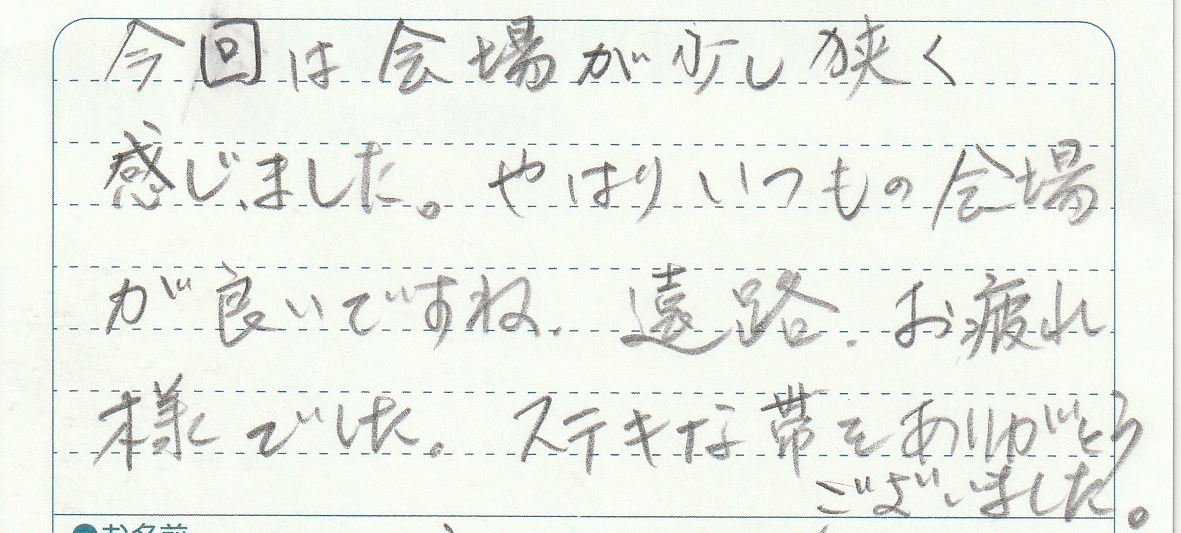 今回は会場が少し狭く
感じました。やはりいつもの会場
が良いですね。遠路、お疲れ
様でした。ステキな帯をありがとう
ございました。
●お名前